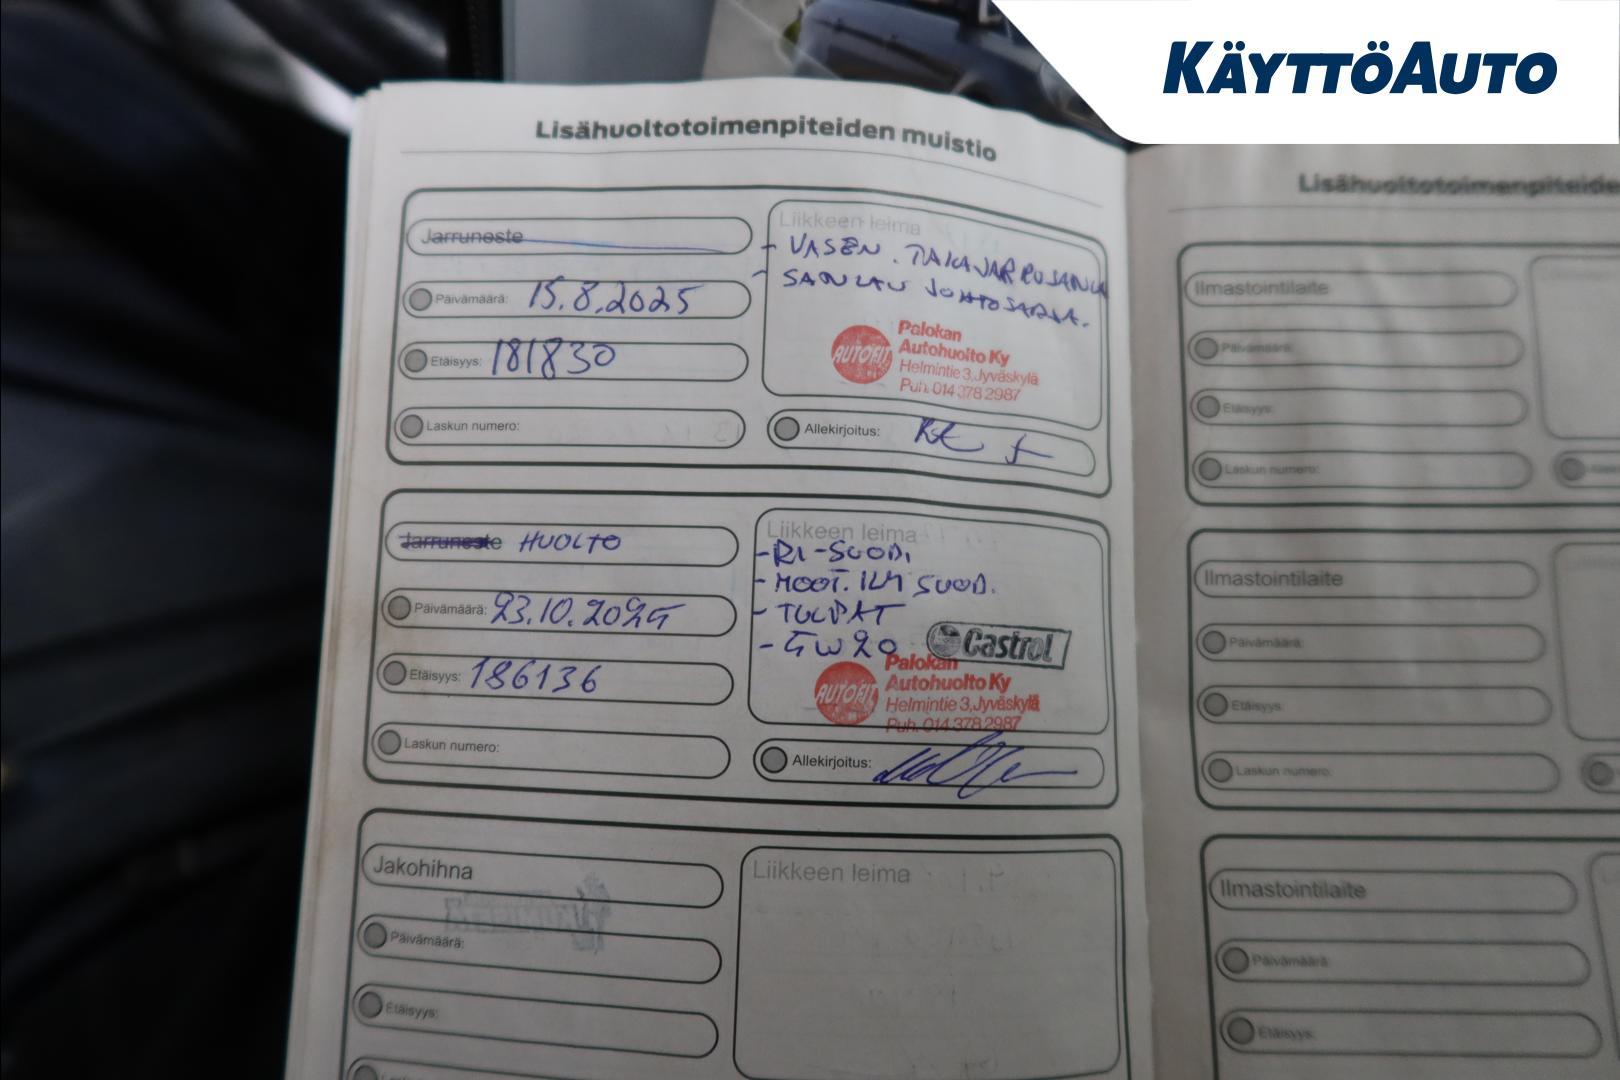 KÄYTTÖAUTO
Lisähuoltotoimenpiteiden muistio
Jarruneste
Päivämäärä: 15.8.2025
Etäisyys: 181830
Laskun numero:
Liikkeen leima
- VASEN. TAKAJARRUSANKA
- SATULAN JOHTOSARJA.
AUTOFIT
Palokan
Autohuolto Ky
Helmintie 3, Jyväskylä
Puh. 014 378 2987
Allekirjoitus:
Jarruneste HUOLTO
Päivämäärä: 23.10.2025
Etäisyys: 186136
Laskun numero:
Liikkeen leima
- RI-SUOD.
- MOOT. ILM SUOD.
- TULPAT
- 5W20
Castrol
AUTOFIT
Palokan
Autohuolto Ky
Helmintie 3, Jyväskylä
Puh. 014 378 2987
Allekirjoitus:
Jakohihna
Päivämäärä:
Etäisyys:
Liikkeen leima
Lisähuoltotoimenpiteide
Ilmastointilaite
Päivämäärä:
Etäisyys:
Laskun numero:
Ilmastointilaite
Päivämäärä:
Etäisyys:
Laskun numero:
Ilmastointilaite
Päivämäärä:
Etäisyys: